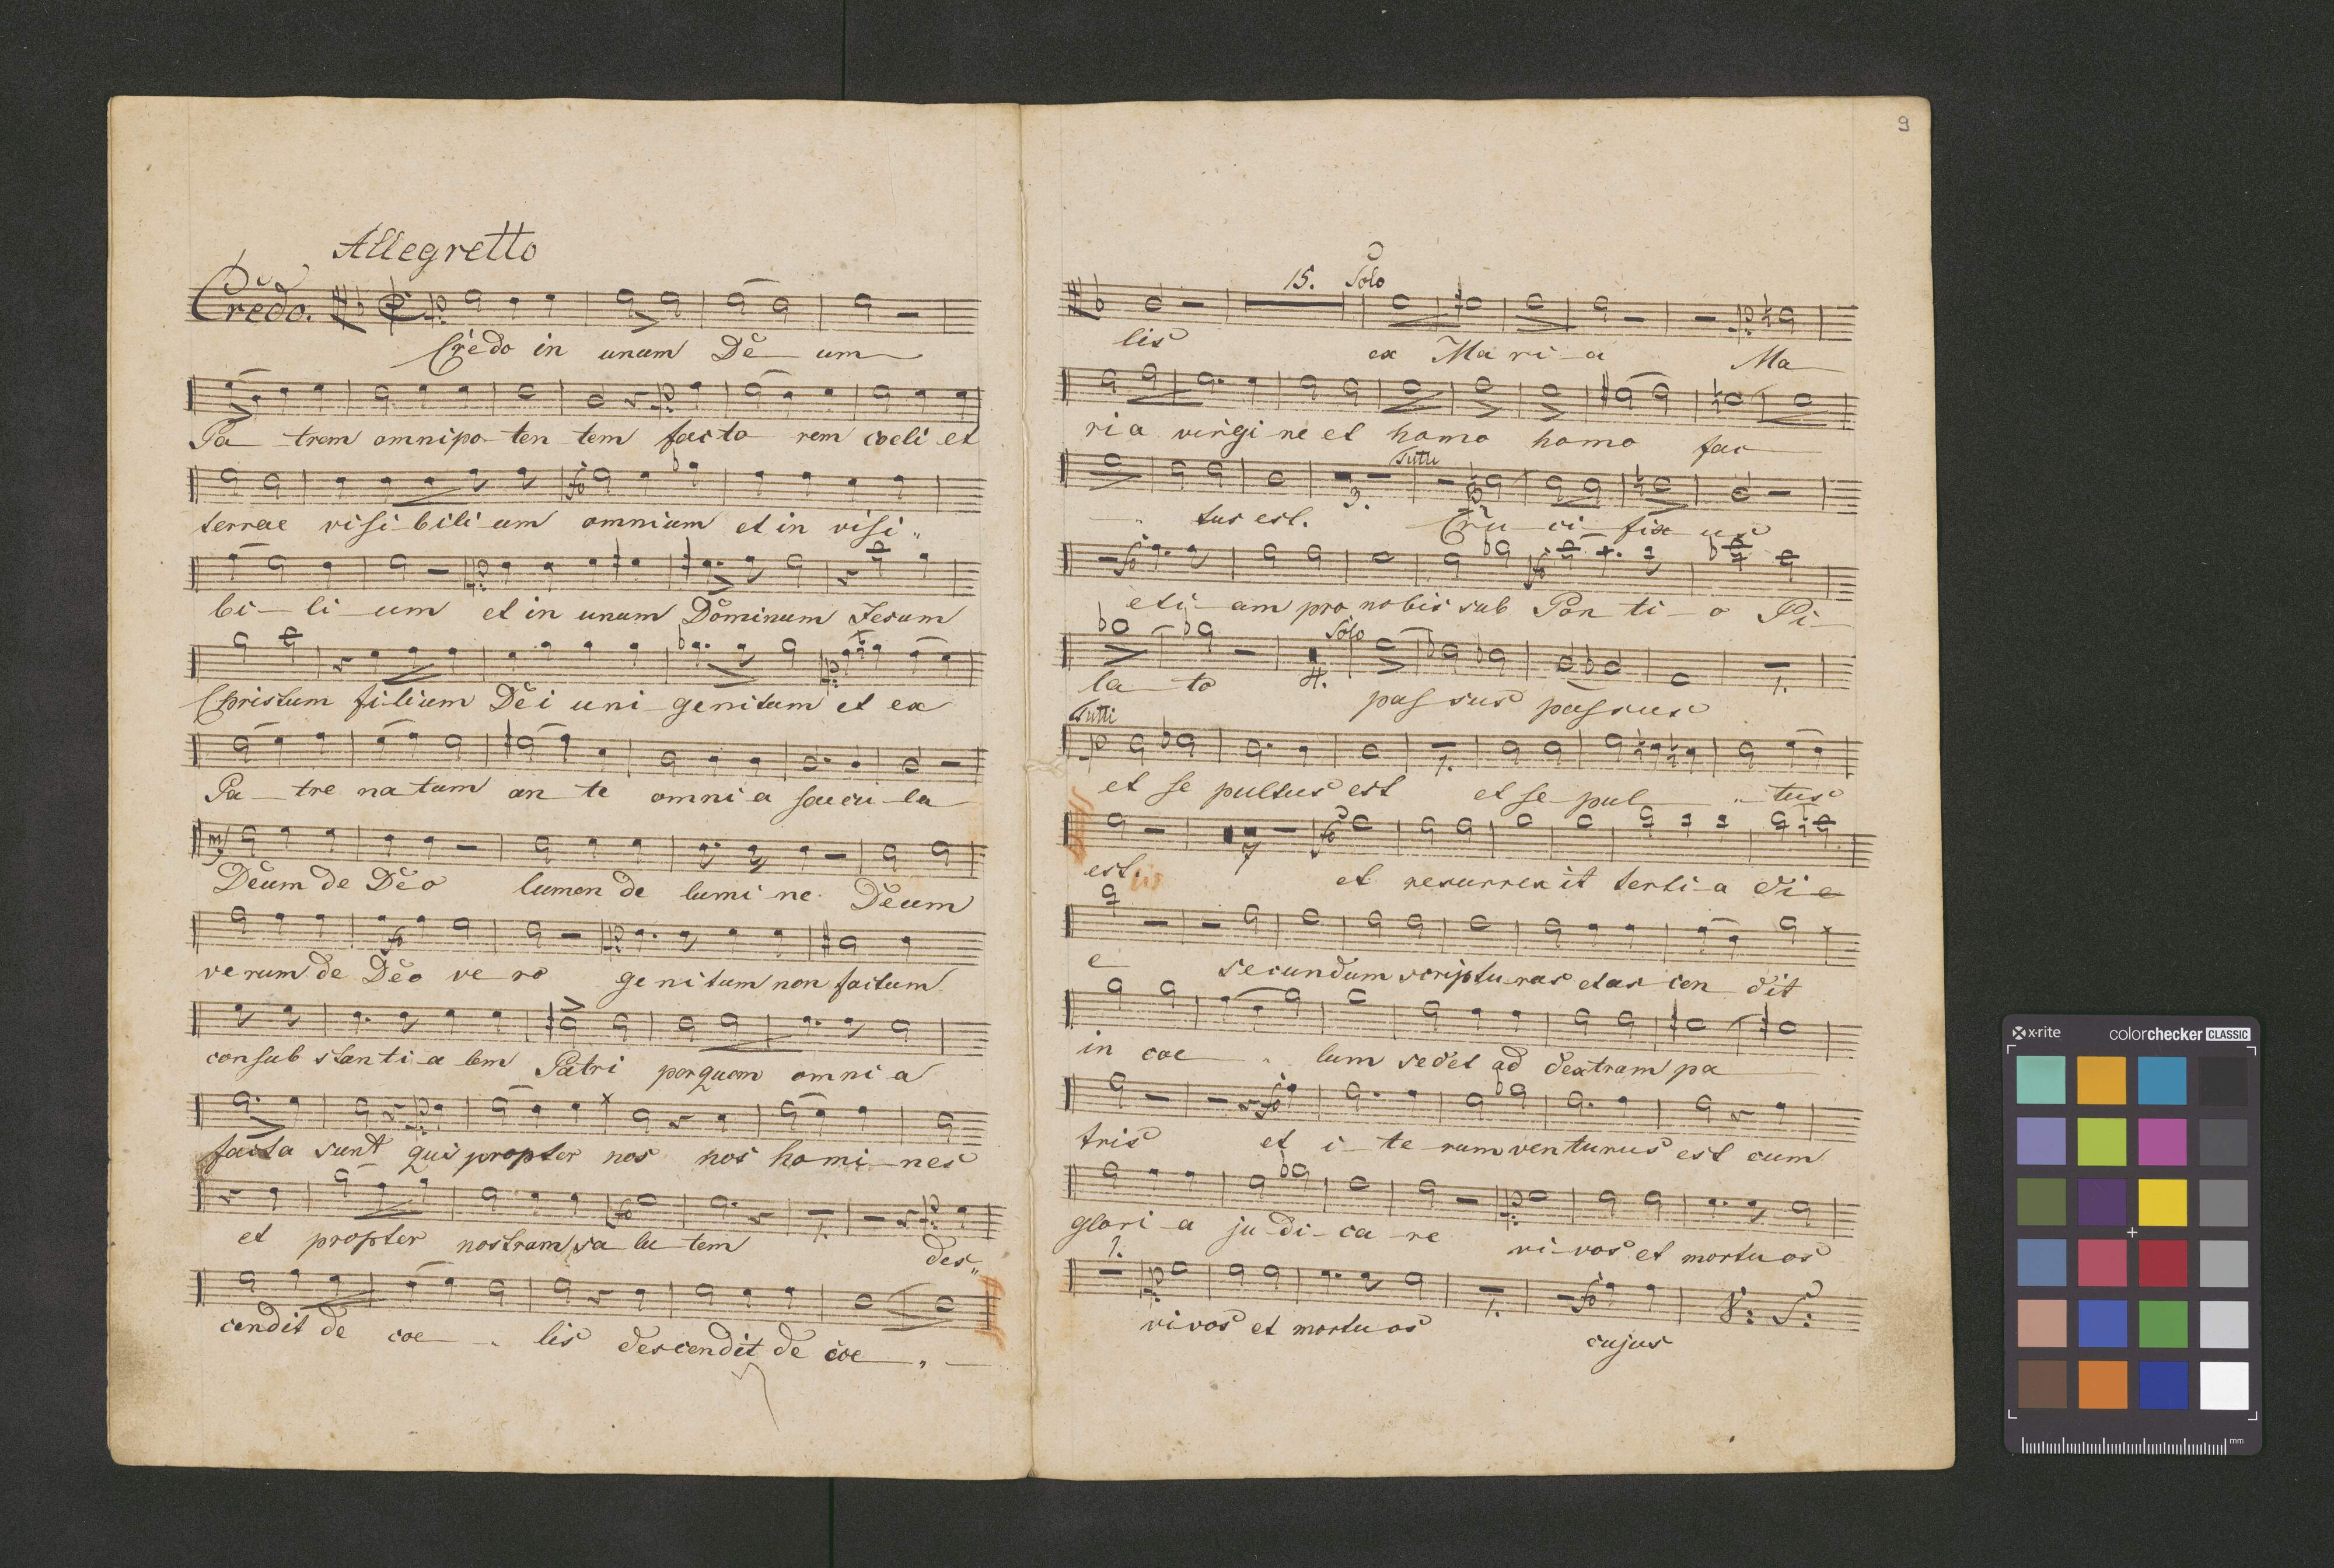 Allegretto
Credo.
Credo in unum De um
Pa trem omnipo ten tem facto rem coeli et
terrae visi bili um omnium et in visi „
bi li um et in unum Dominum Jesum
Christum filium Dei uni genitum et ex
Pa tre natum an te omni a saecu la
mf
Deum de Deo lumen de lumi ne Deum
fo
verum de Deo ve ro ge ni tum non factum
consub stanti a lem Patri per quem omni a
facta sunt qui propter nos nos homi nes
fo 1.
et propter nostram sa lu tem des „
cendit de coe „ lis descendit de coe „
9
15. Solo
lis ex Ma ri a Ma
ri a virgi ne et homo homo fac
3. Tutti
„ tus est. Cru ci fix us
fo fo
eti am pro nobis sub Pon ti o Pi
4. Solo 1.
la to passus passus
Tutti
1.
et se pultus est et se pul „ tus
7 fo
est. et resurrex it terti a di e
e secundum scriptu ras et as cen dit
in coe „ lum sedet ad dextram pa
fo
tris et i te rum venturus est cum
glori a ju di ca re vi vos et mortu os
1. 1. fo V: S:
vivos et mortu os cujus
x-rite colorchecker CLASSIC
mm